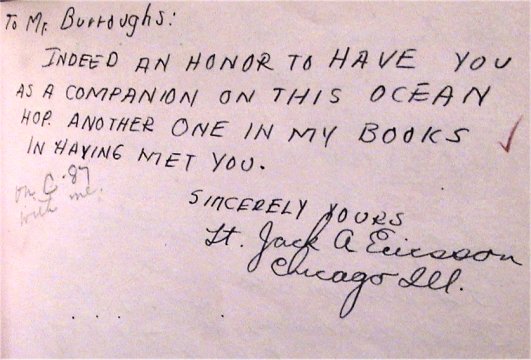 To Mr. Burroughs:
INDEED AN HONOR TO HAVE YOU
AS A COMPANION ON THIS OCEAN
HOP. ANOTHER ONE IN MY BOOKS
IN HAVING MET YOU.
on C-87
with me.
SINCERELY YOURS
Lt. Jack A Ericsson
Chicago Ill.